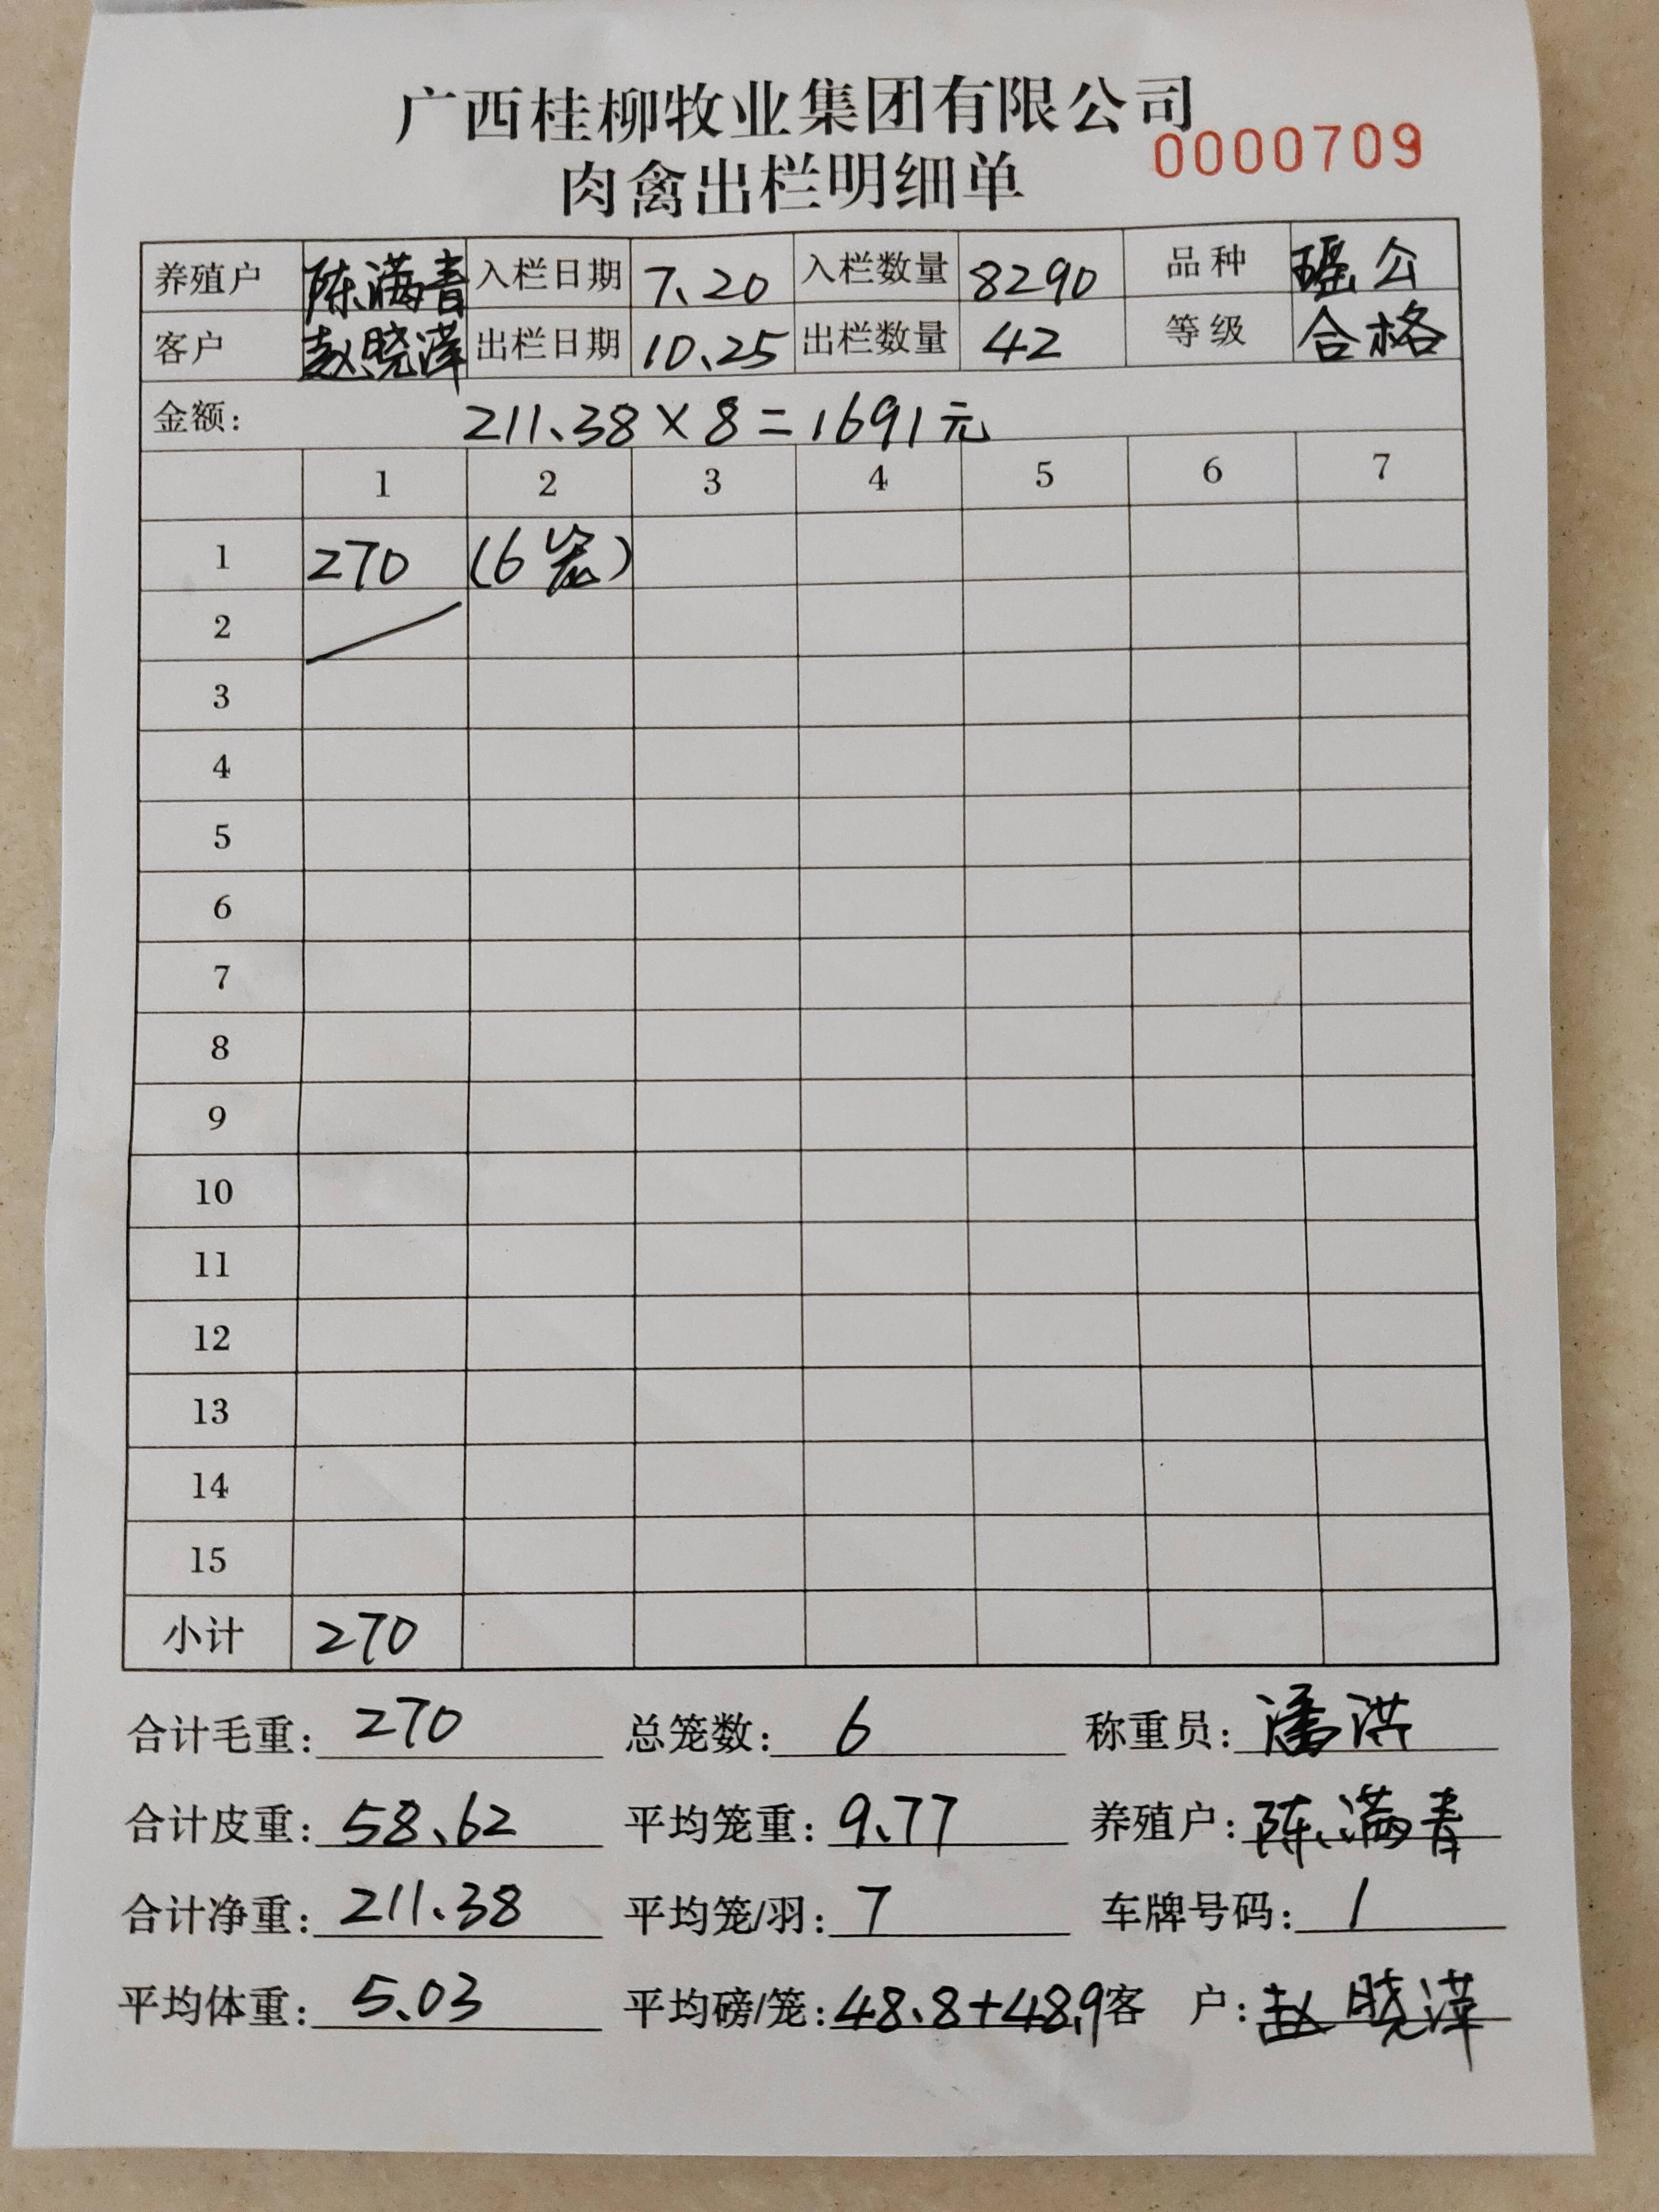 广西桂柳牧业集团有限公司
0000709
肉禽出栏明细单
养殖户 陈满青 入栏日期 7.20 入栏数量 8290 品种 瑶公
客户 赵晓萍 出栏日期 10.25 出栏数量 42 等级 合格
金额: 211.38×8=1691元
1 2 3 4 5 6 7
1 270 (6笼)
2
3
4
5
6
7
8
9
10
11
12
13
14
15
小计 270
合计毛重: 270 总笼数: 6 称重员: 潘洪
合计皮重: 58.62 平均笼重: 9.77 养殖户: 陈满青
合计净重: 211.38 平均笼/羽: 7 车牌号码: 1
平均体重: 5.03 平均磅/笼: 48.8+48.9 客户: 赵晓萍